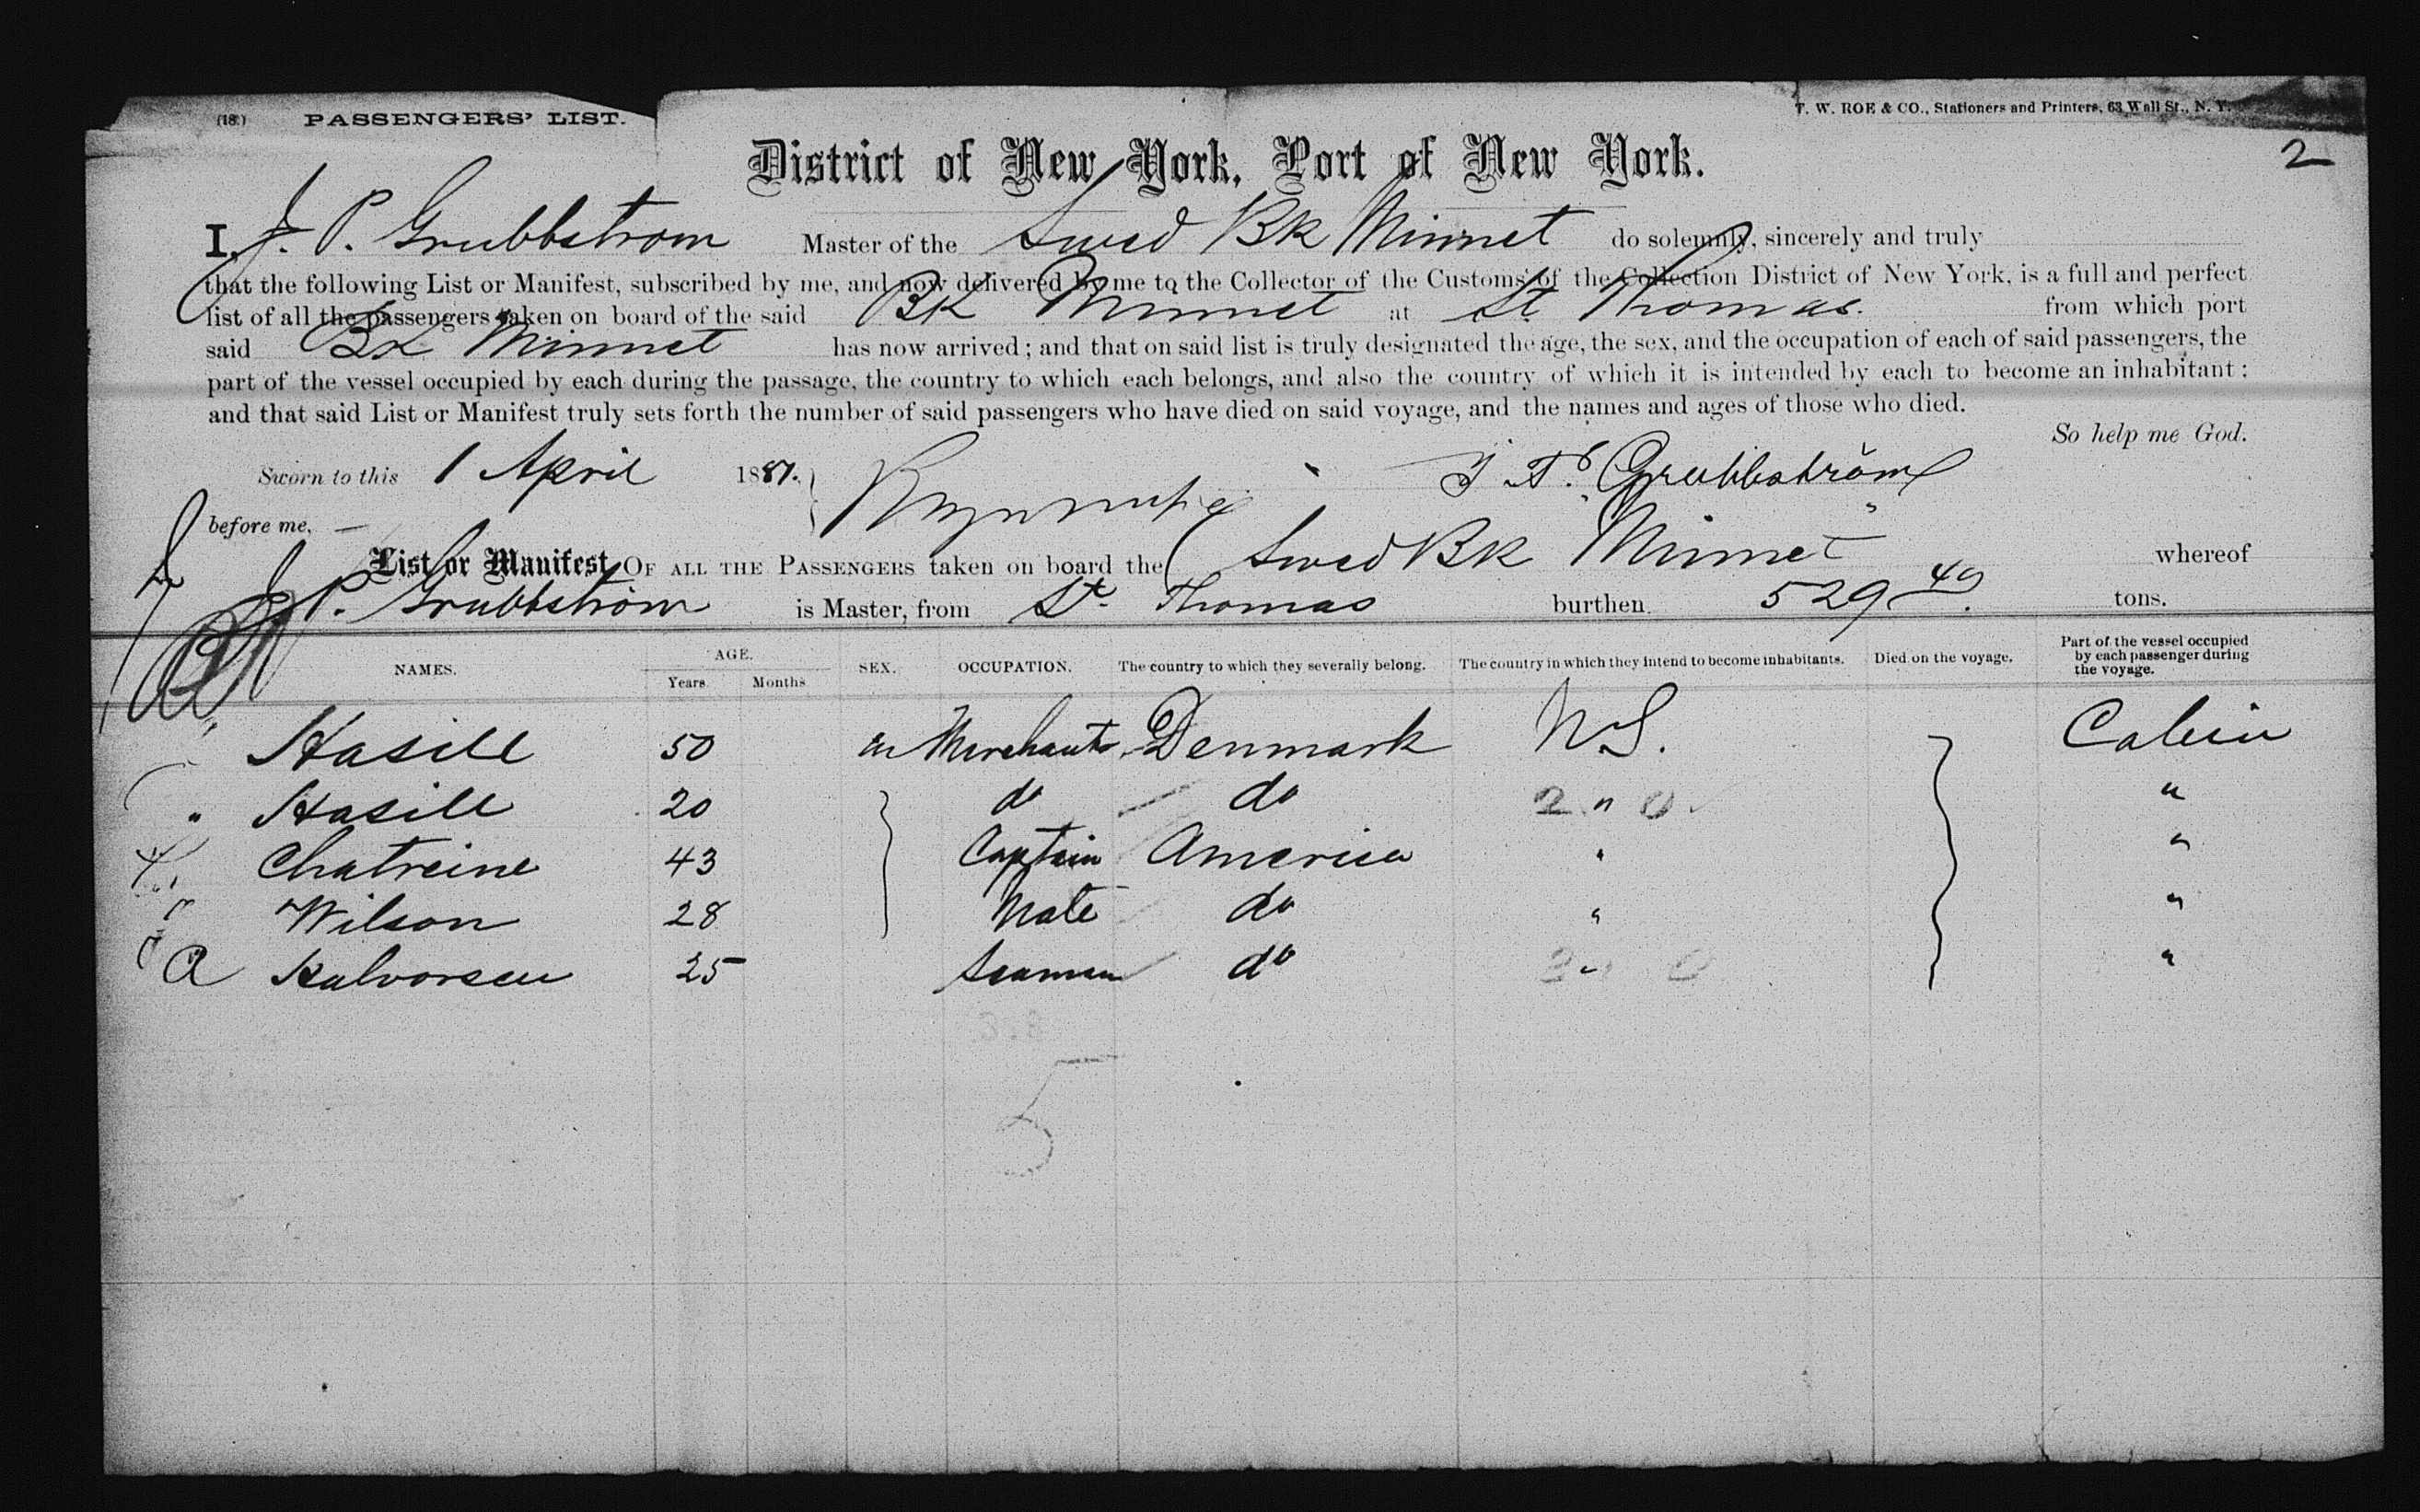 (18) PASSENGERS' LIST.
T. W. ROE & CO., Stationers and Printers, 63 Wall St., N. Y.
2
District of New York, Port of New York.
I, J. P. Grubbstrom Master of the Swed Bk Minnet do solemnly, sincerely and truly
that the following List or Manifest, subscribed by me, and now delivered by me to the Collector of the Customs of the Collection District of New York, is a full and perfect
list of all the passengers taken on board of the said Bk Minnet at St. Thomas. from which port
said Bk Minnet has now arrived; and that on said list is truly designated the age, the sex, and the occupation of each of said passengers, the
part of the vessel occupied by each during the passage, the country to which each belongs, and also the country of which it is intended by each to become an inhabitant:
and that said List or Manifest truly sets forth the number of said passengers who have died on said voyage, and the names and ages of those who died.
So help me God.
Sworn to this 1 April 1881. J. P. Grubbström
before me,
List or Manifest OF ALL THE PASSENGERS taken on board the Swed Bk Minnet whereof
J. P. Grubbström is Master, from St. Thomas burthen 529 49 tons.
NAMES. AGE. Years. Months. SEX. OCCUPATION. The country to which they severally belong. The country in which they intend to become inhabitants. Died on the voyage. Part of the vessel occupied by each passenger during the voyage.
Hasill 50 m Merchant Denmark Cabin
" Hasill 20 do do 2 " 0 "
Chatreine 43 Captain America " "
" Wilson 28 Mate do " "
A Halvorsen 25 Seaman do " "
5